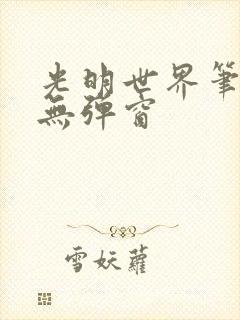 光明世界筆
無彈窗
雪妖蘿